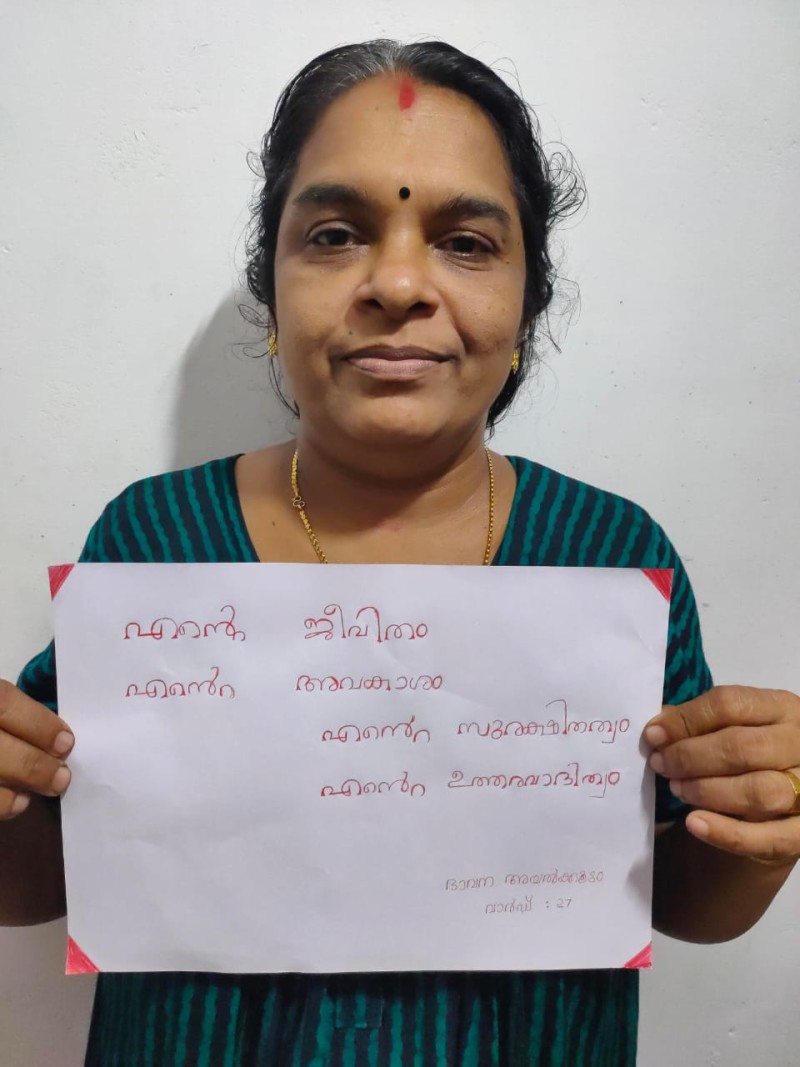 എന്റെ ജീവിതം
എന്റെ അവകാശം
എന്റെ സുരക്ഷിതത്വം
എന്റെ ഉത്തരവാദിത്വം
ഭാവന അയൽക്കൂട്ടം
വാർഡ് : 27